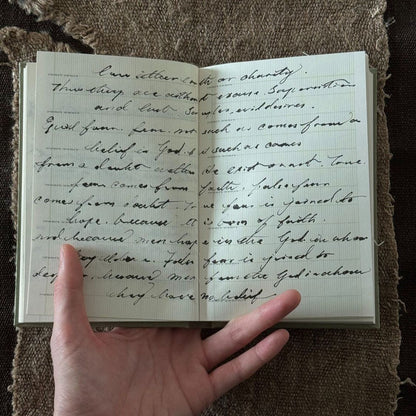 truth or charity.
Thus they are without excuse Superstition
and lust. Scruples, evil desires.
fear, fear, not such as comes from a
belief in God, such as comes
from a doubt whether He exist or not. True
fear comes from faith, false fear
comes from doubt. True fear is joined to
hope, because it is born of faith.
and because men hope in the God in whom
they believe. False fear is joined to
despair, because men fear the God in whom
they have no belief.